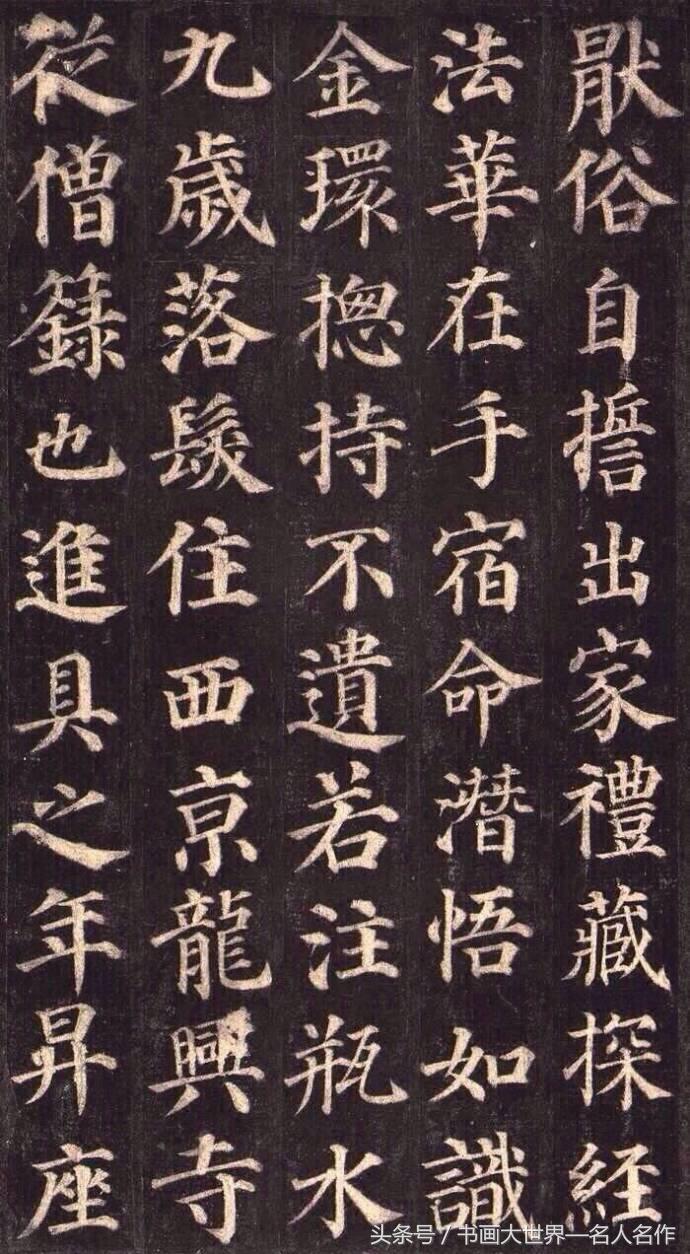 厭俗自擔出家禮藏探經
法華在手宿命潛悟如識
金環揔持不遺若注瓶水
九歲落髮住西京龍興寺
從僧籙也進具之年昇座
头条号/书画大世界—名人名作